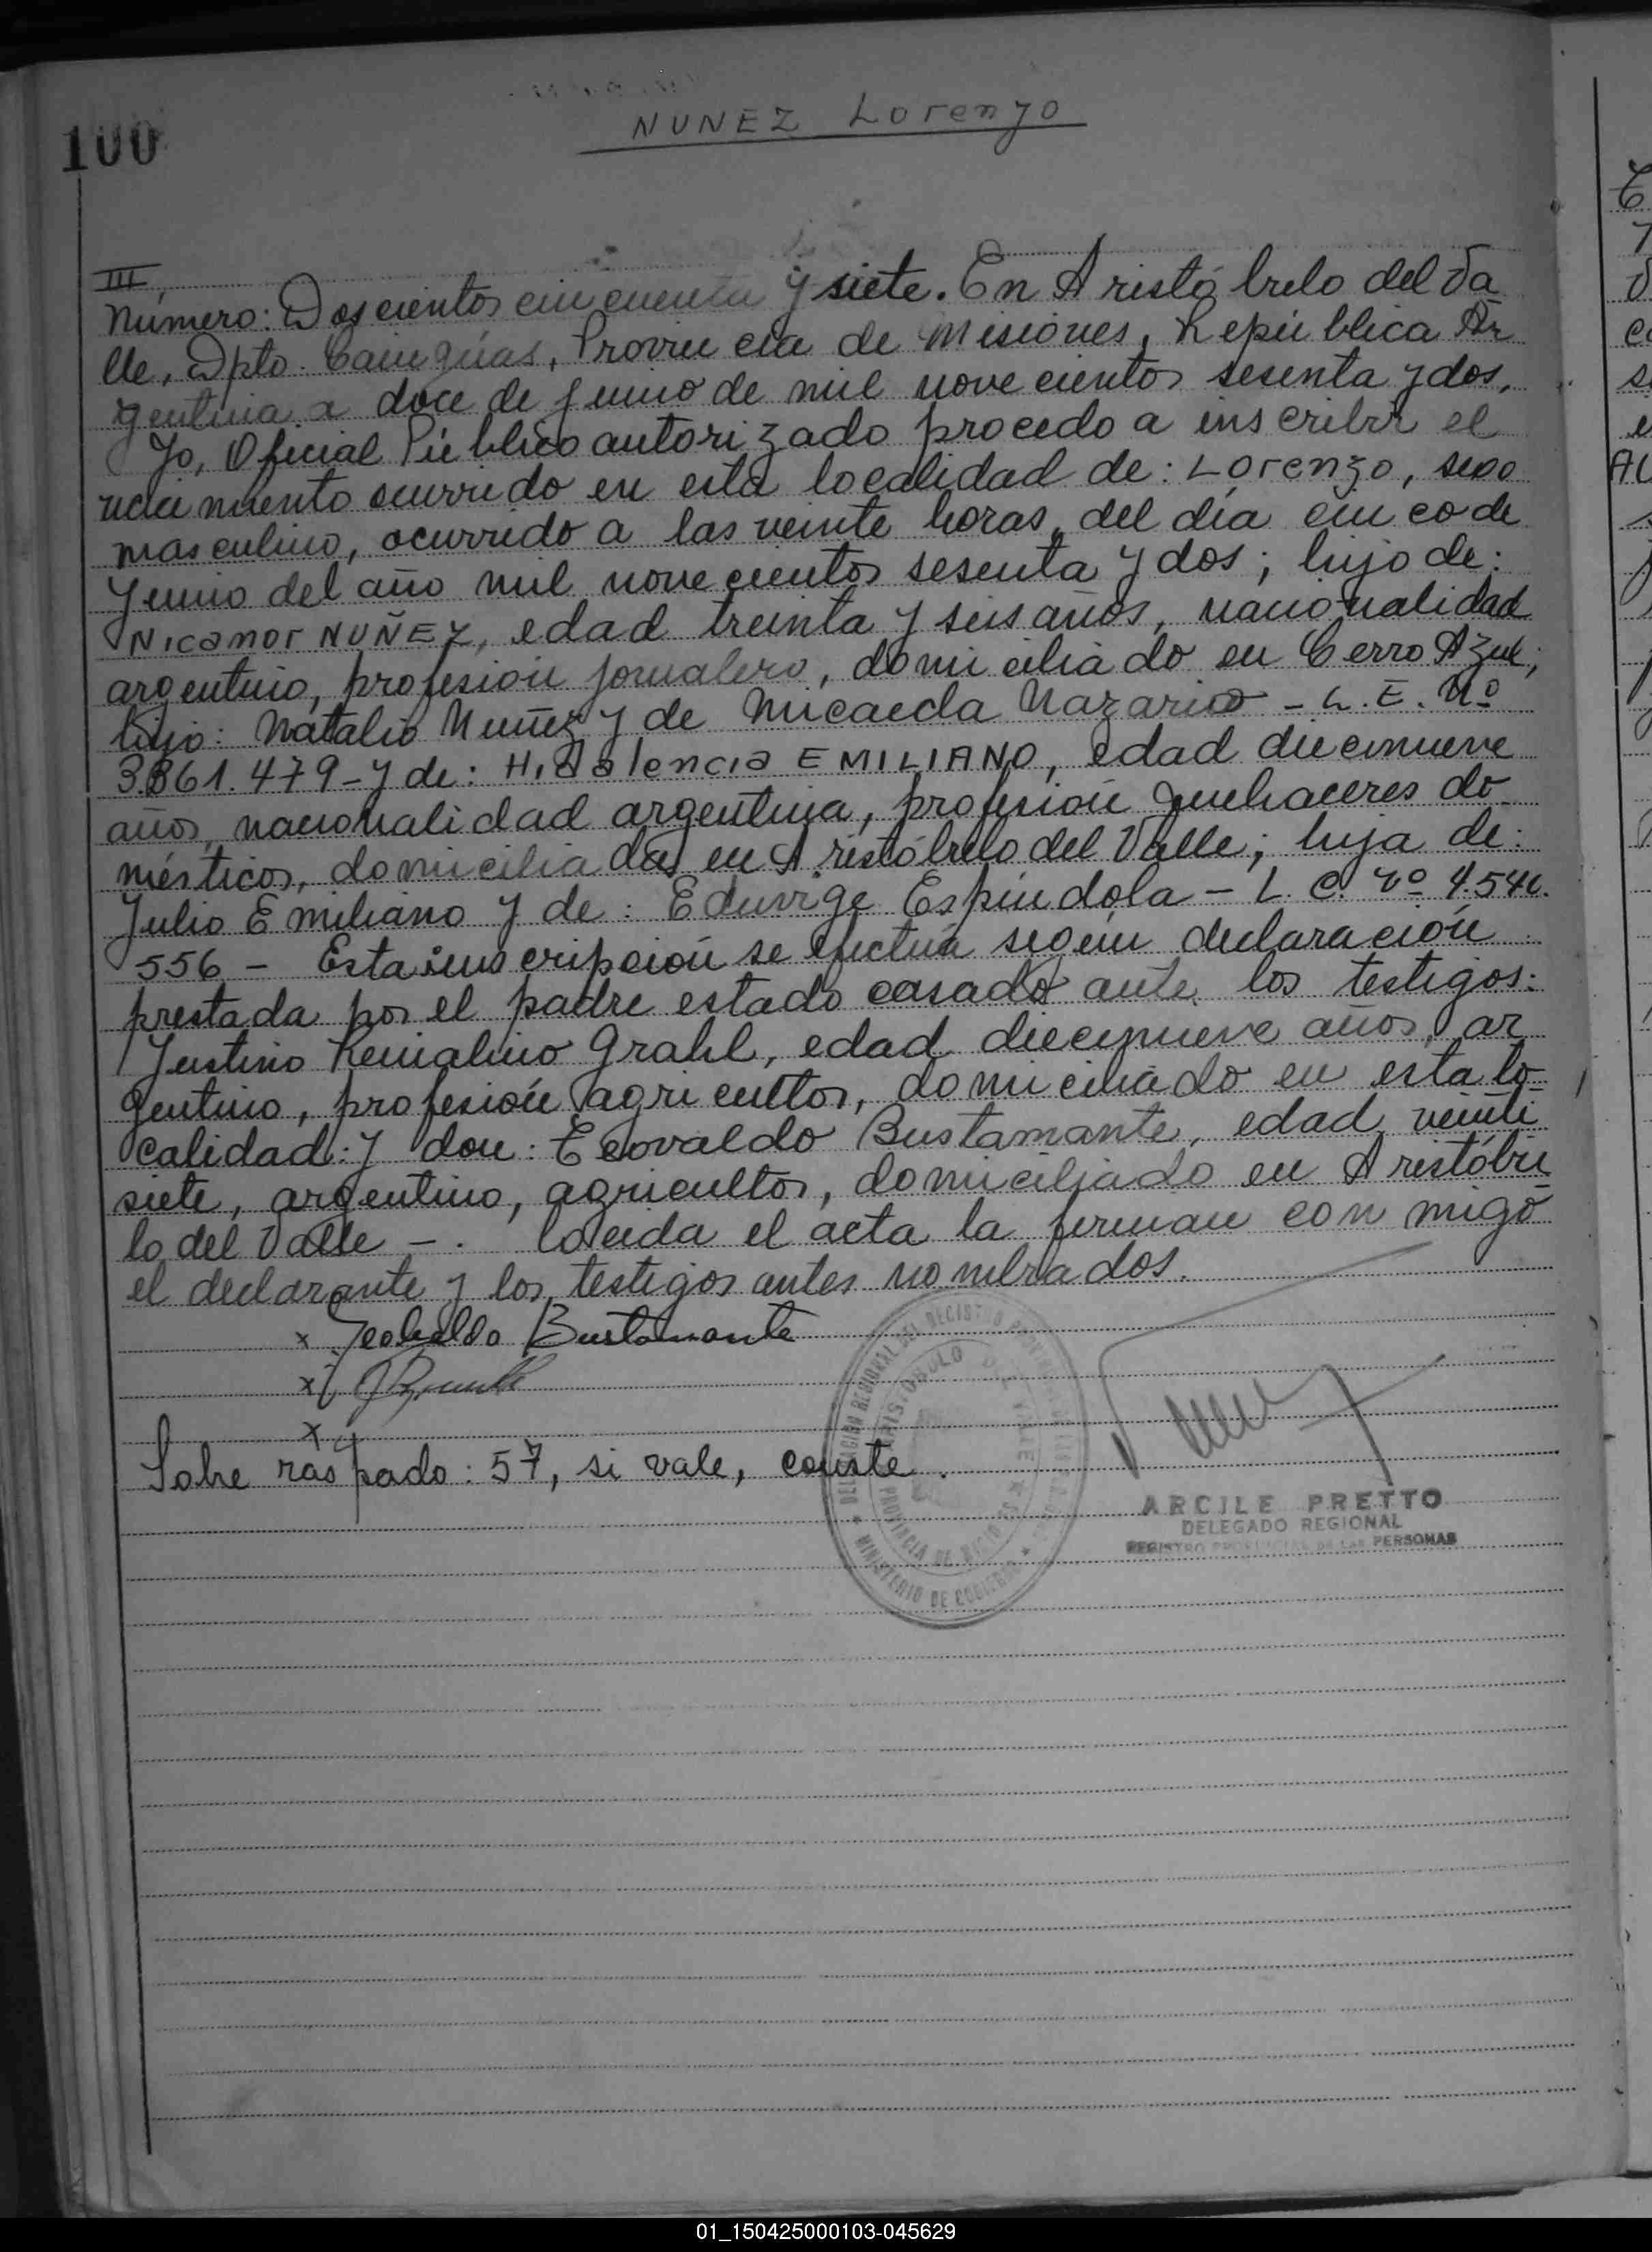 100
NUNEZ Lorenzo
III
Número: Doscientos cincuenta y siete. En Aristóbulo del Va
lle, Dpto. Cainguas, Provincia de Misiones, República Ar
gentina a doce de Junio de mil novecientos sesenta y dos,
Yo, Oficial Público autorizado procedo a inscribir el
nacimiento ocurrido en esta localidad de: Lorenzo, sexo
masculino, ocurrido a las veinte horas, del día cinco de
Junio del año mil novecientos sesenta y dos; hijo de:
Nicanor NUÑEZ, edad treinta y seis años, nacionalidad
argentino, profesión jornalero, domiciliado en Cerro Azul;
hijo: Natalio Nuñez y de Micaela Nazario - L. E. Nº
3.861.479 - y de: Hidalencia EMILIANO, edad diecinueve
años, nacionalidad argentina, profesión quehaceres do
mésticos, domiciliada en Aristóbulo del Valle; hija de:
Julio Emiliano y de: Eduvige Espíndola - L. C. Nº 4.540.
556 - Esta inscripción se efectúa según declaración
prestada por el padre estado casado ante los testigos:
Justino Grahl, edad diecinueve años, ar
gentino, profesión agricultor, domiciliado en esta lo
calidad: y don: Teovaldo Bustamante, edad veinti
siete, argentino, agricultor, domiciliado en Aristóbu
lo del Valle -. Leída el acta la firman conmigo
el declarante y los testigos antes nombrados.
x Teobaldo Bustamante
x
x
Sobre raspado: 57, si vale, conste.
DELEGACION REGIONAL DEL REGISTRO PROVINCIAL DE LAS PERSONAS
ARISTOBULO DEL VALLE
PROVINCIA DE MISIONES
MINISTERIO DE GOBIERNO
ARCILE PRETTO
DELEGADO REGIONAL
REGISTRO PROVINCIAL DE LAS PERSONAS
01_150425000103-045629